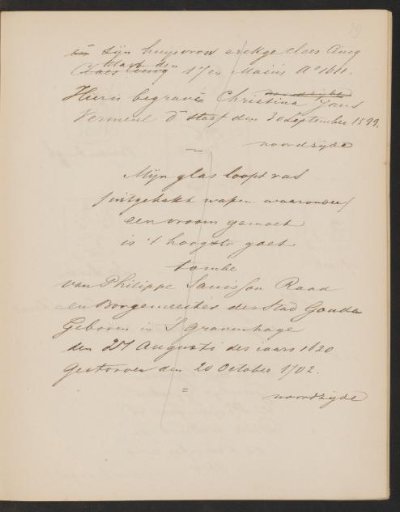 en zijn huijsvrou
Claes
den 17en Maius Ao 1611.
Hierin begraven Christina Jans
Vermeul † sterf den 30 September 1599.
noordzijde
Mijn glas loopt ras
wapen waaronder
een vroom gemoet
is 't hoogste goet
tombe
van Philippe Sansson Raad
en Borgemeester der Stad Gouda
Geboren in 's Gravenhage
den 27 Augusti des jaars 1620
Gestorven den 20 October 1702.
=
noordzijde